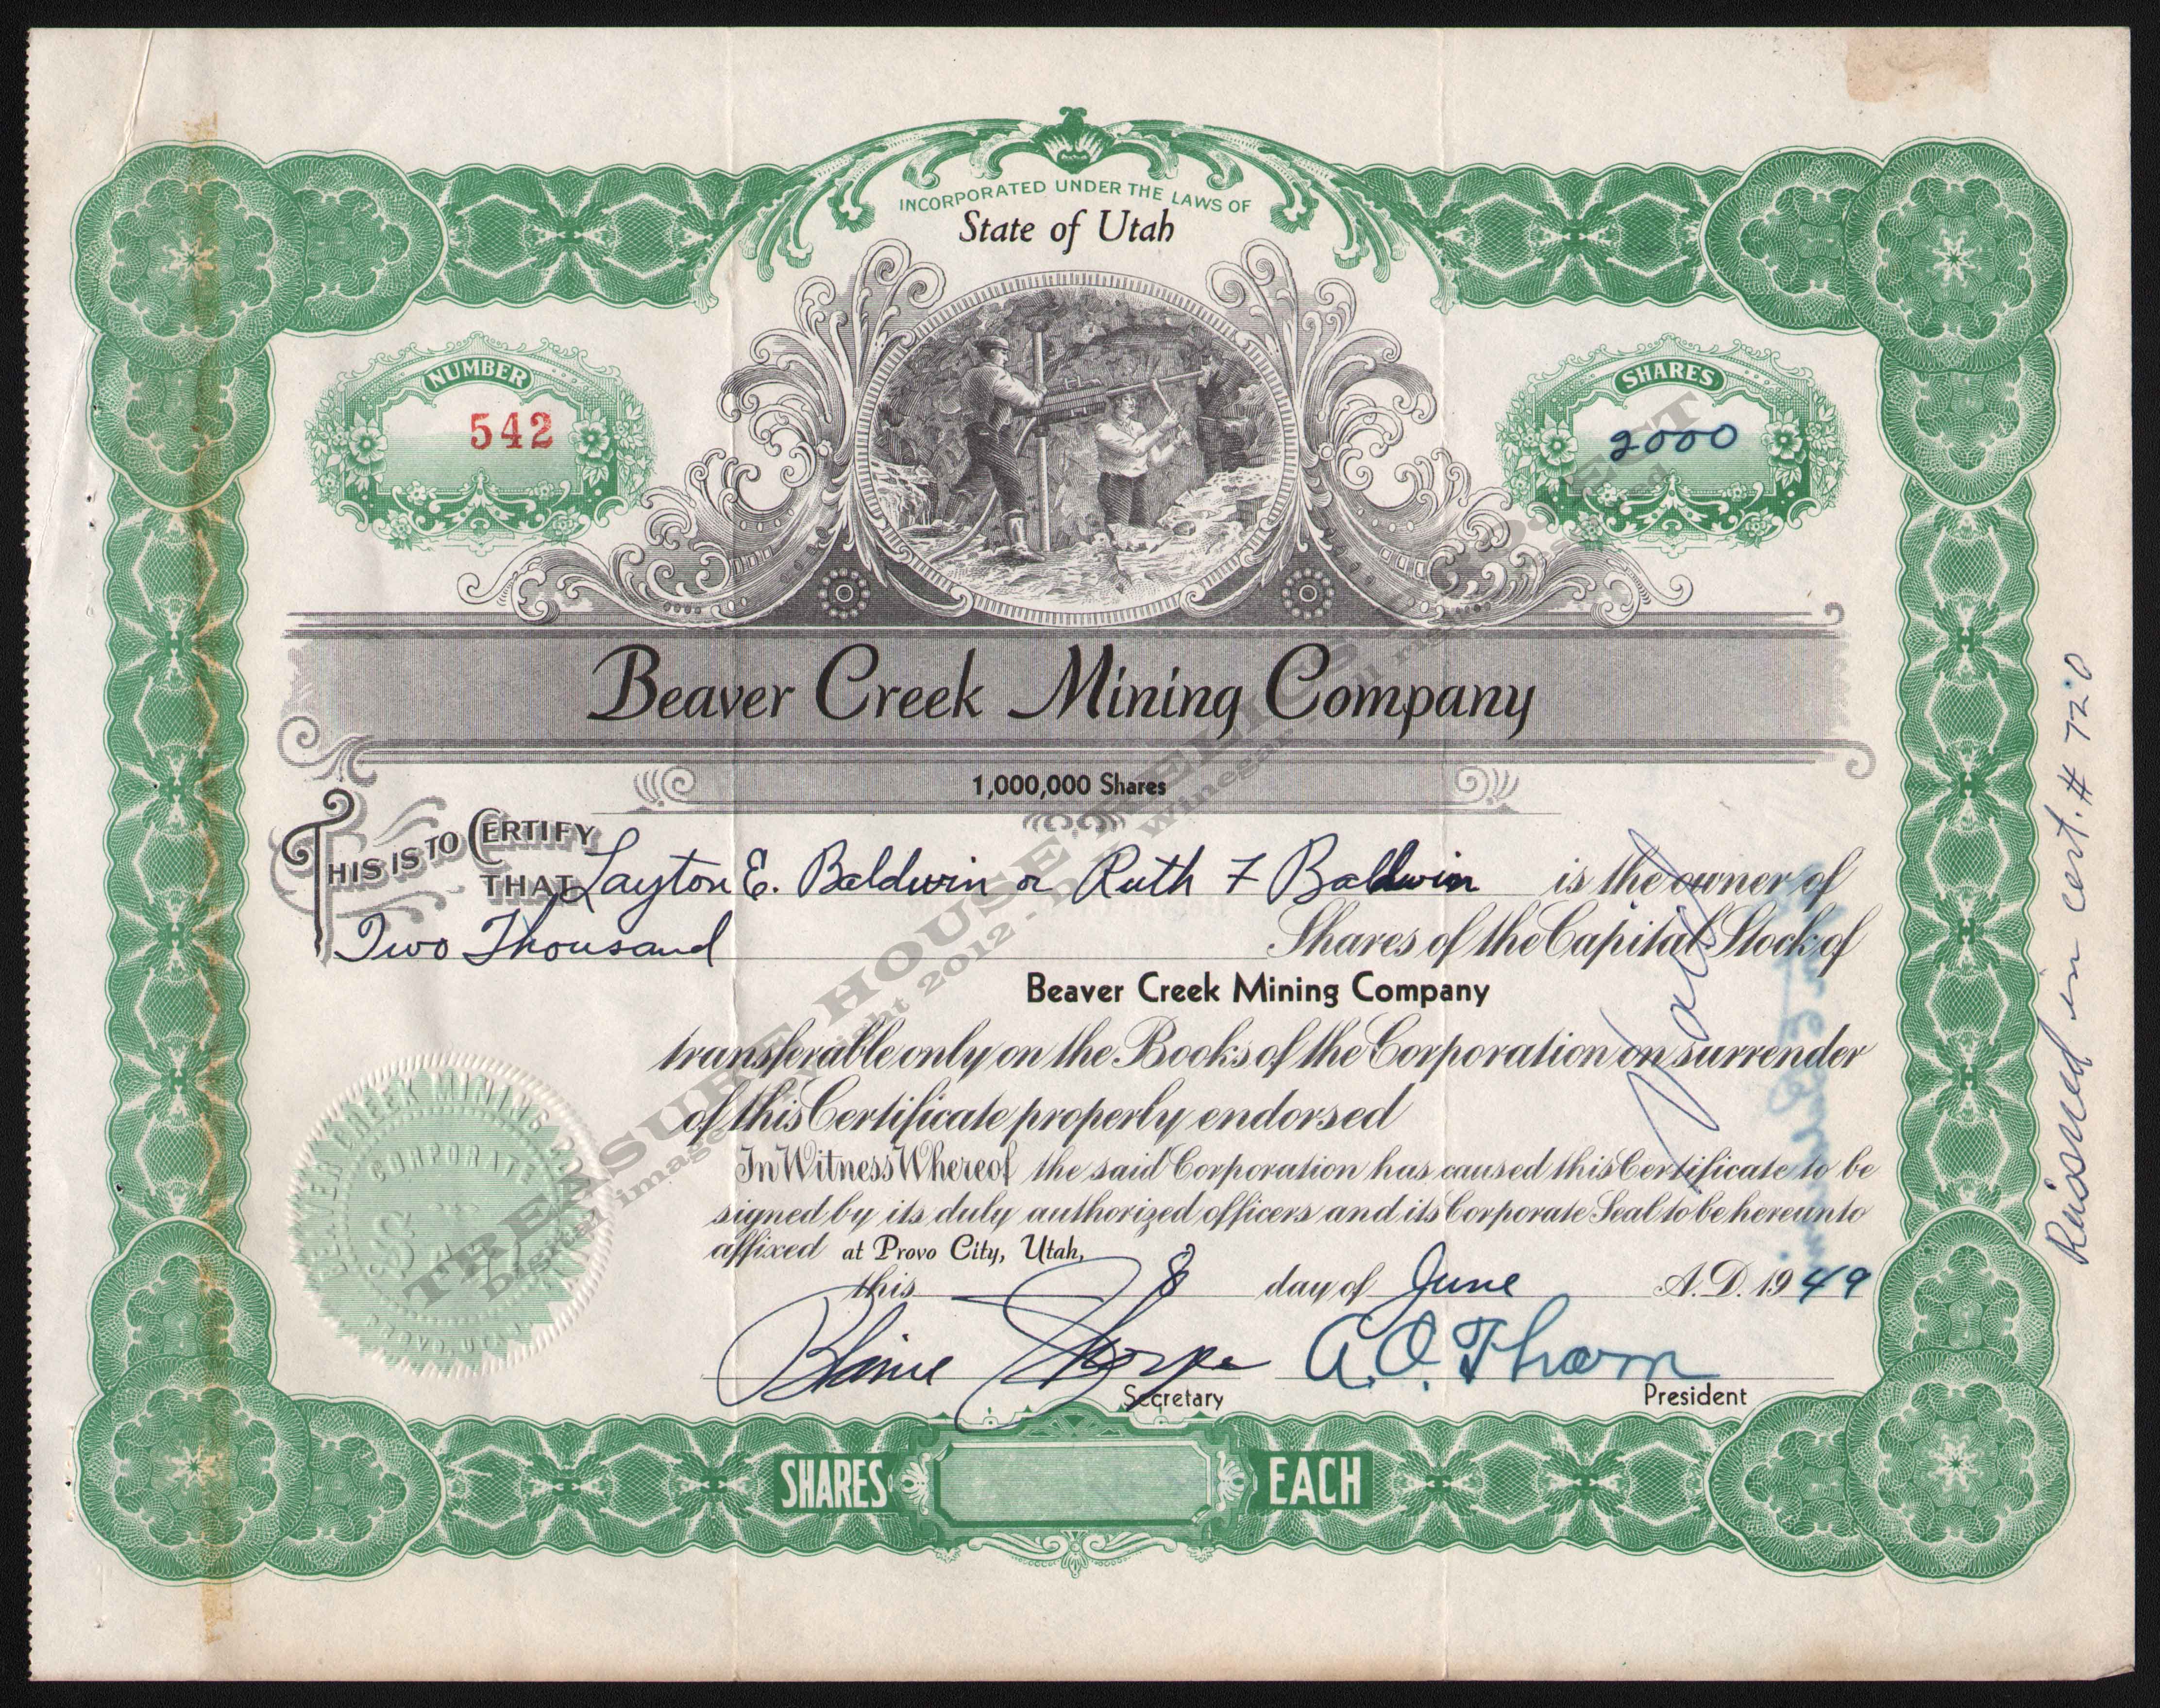 INCORPORATED UNDER THE LAWS OF
State of Utah
NUMBER
542
SHARES
2000
Beaver Creek Mining Company
1,000,000 Shares
THIS IS TO CERTIFY THAT Layton E. Baldwin or Ruth F Baldwin is the owner of
Two Thousand Shares of the Capital Stock of
Beaver Creek Mining Company
transferable only on the Books of the Corporation on surrender
of this Certificate properly endorsed
In Witness Whereof the said Corporation has caused this Certificate to be
signed by its duly authorized officers and its Corporate Seal to be hereunto
affixed at Provo City, Utah,
this 8 day of June A.D. 1949
Blaine Thorpe A.O. Thorn
Secretary President
SHARES EACH
BEAVER CREEK MINING
CORPORATE
Void
Reissued in cert. # 720
TREASURE HOUSE RELICS PROJECT
Digital image copyright 2012 - D. Winegar - All rights reserved